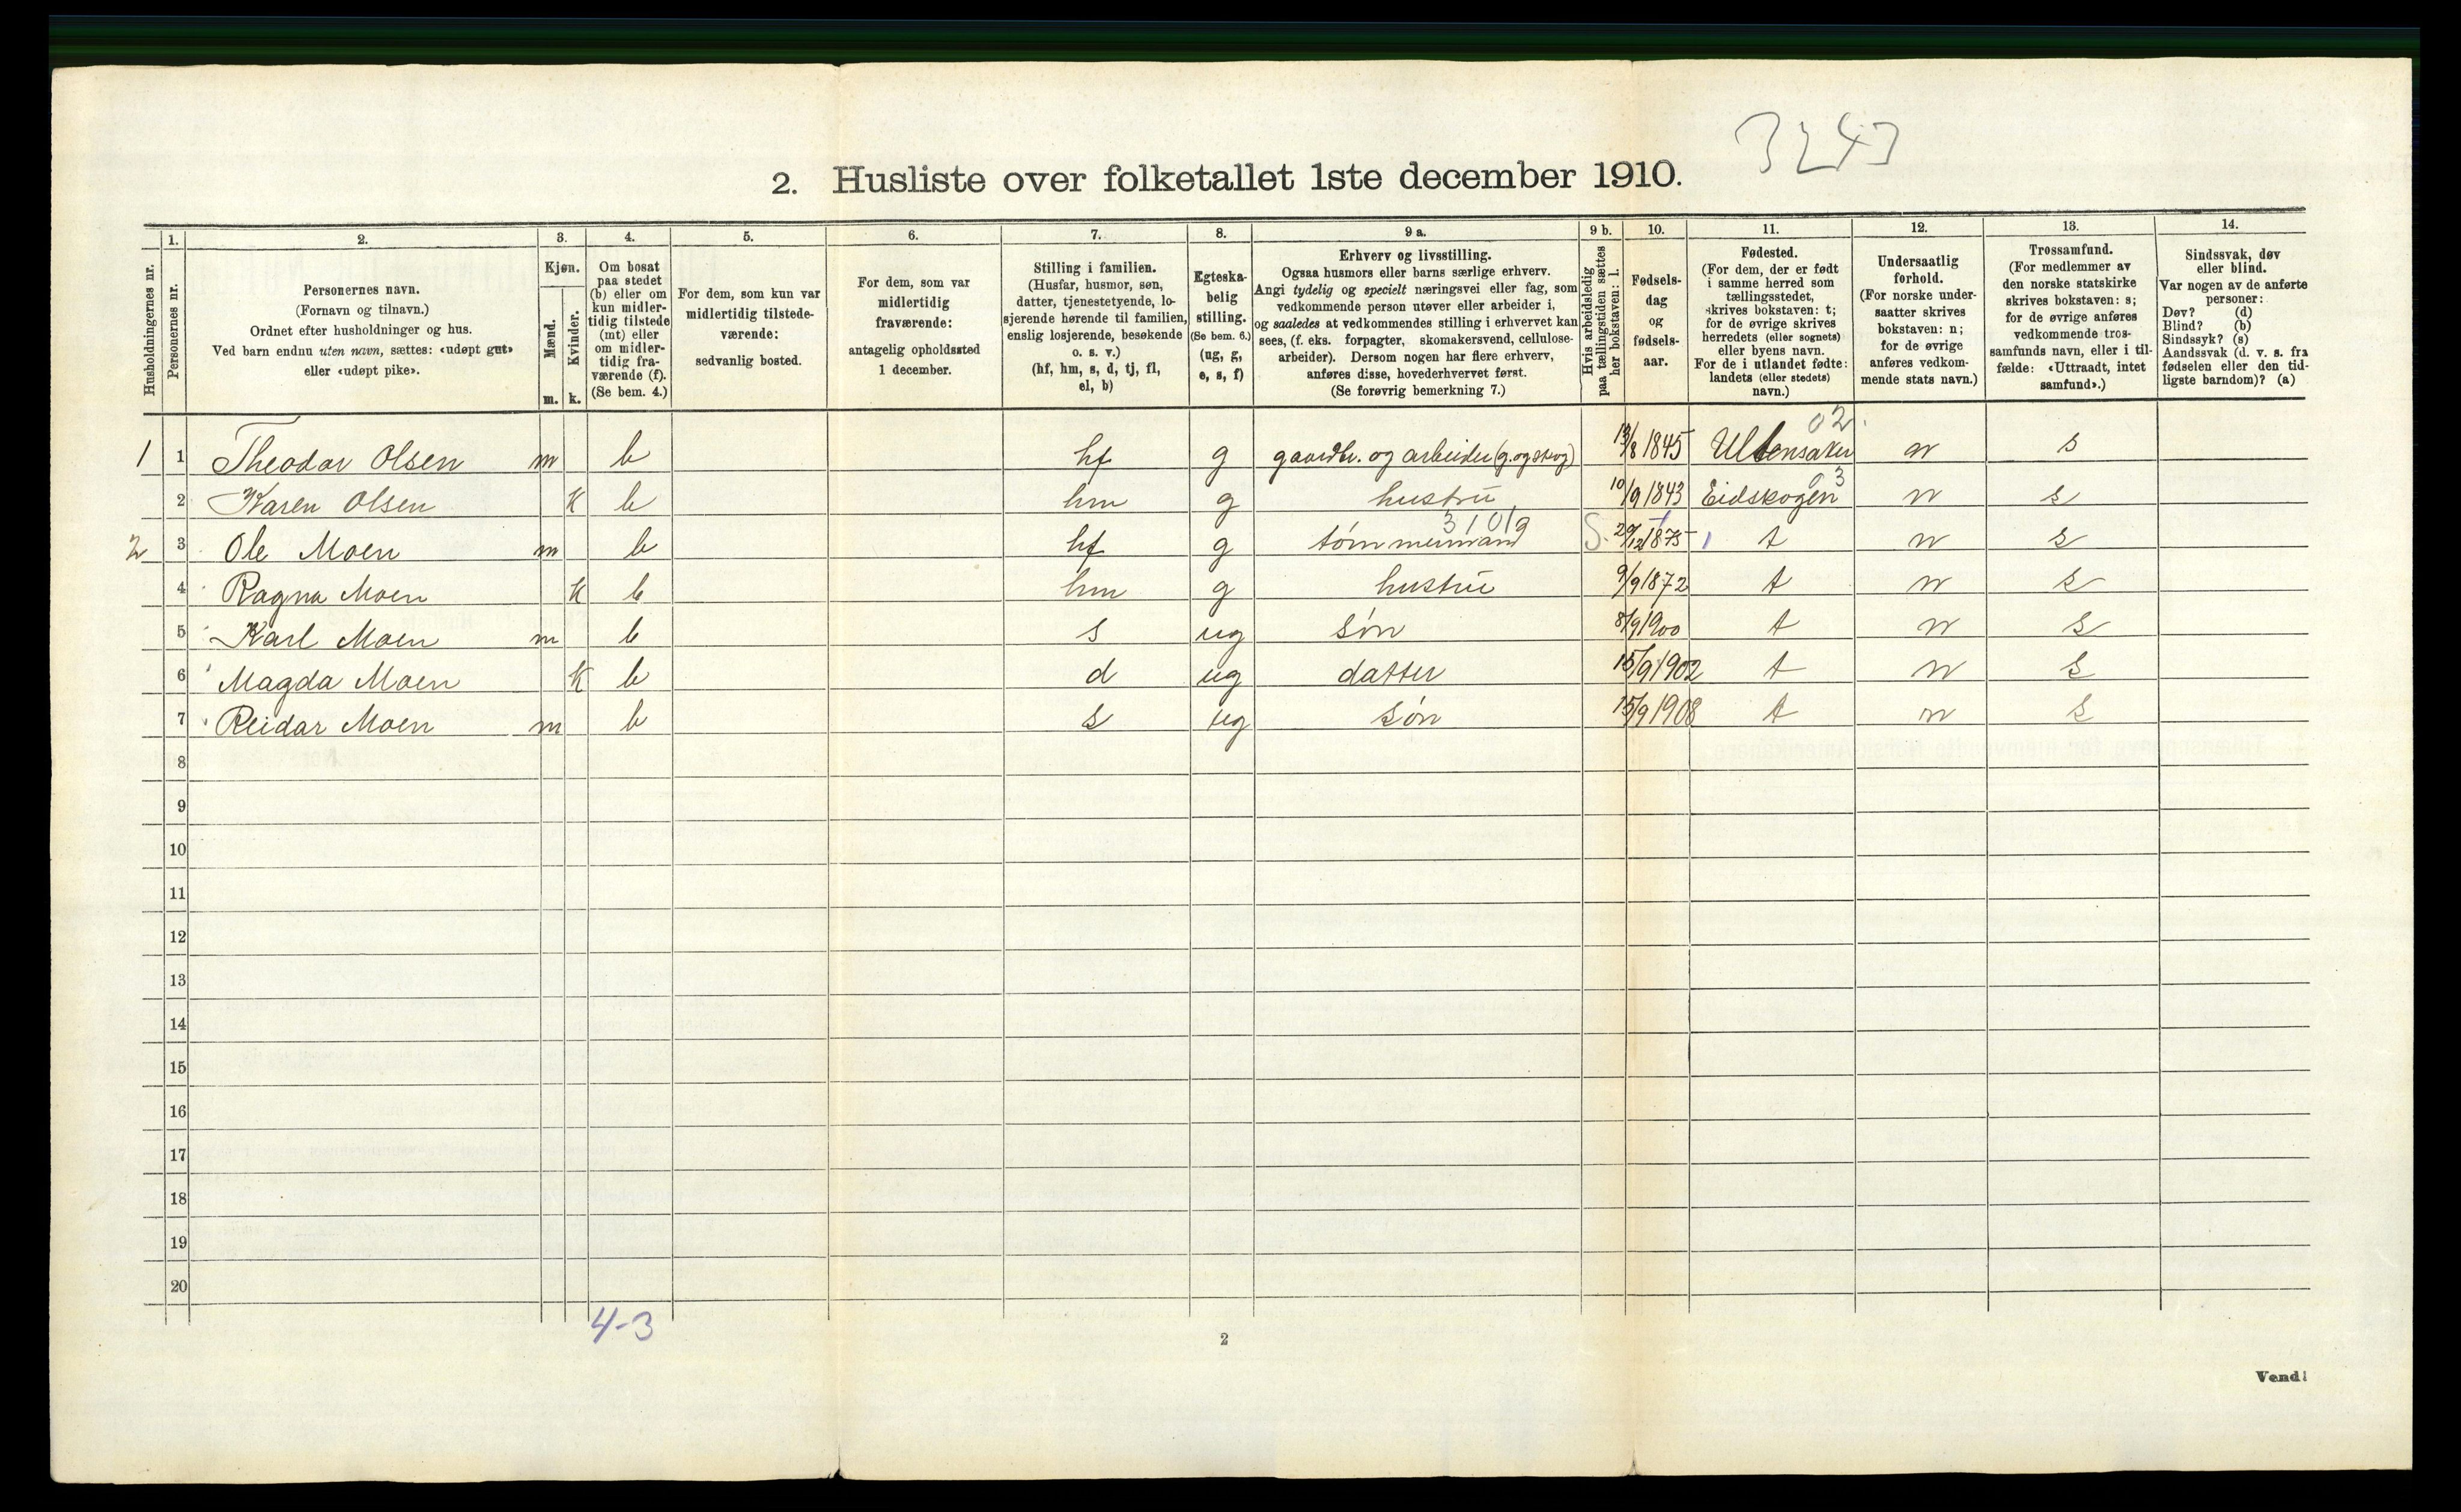 3243
2. Husliste over folketallet 1ste december 1910.
Husholdningernes nr.
1.
Personernes nr.
2.
Personernes navn.
(Fornavn og tilnavn.)
Ordnet efter husholdninger og hus.
Ved barn endnu uten navn, sættes: «udøpt gut»
eller «udøpt pike».
3.
Kjøn.
Mænd.
m.
Kvinder.
k.
4.
Om bosat
paa stedet
(b) eller om
kun midler-
tidig tilstede
(mt) eller
om midler-
tidig fra-
værende (f).
(Se bem. 4.)
5.
For dem, som kun var
midlertidig tilstede-
værende:
sedvanlig bosted.
6.
For dem, som var
midlertidig
fraværende:
antagelig opholdssted
1 december.
7.
Stilling i familien.
(Husfar, husmor, søn,
datter, tjenestetyende, lo-
sjerende hørende til familien,
enslig losjerende, besøkende
o. s. v.)
(hf, hm, s, d, tj, fl,
el, b)
8.
Egteska-
belig
stilling.
(Se bem. 6.)
(ug, g,
e, s, f)
9 a.
Erhverv og livsstilling.
Ogsaa husmors eller barns særlige erhverv.
Angi tydelig og specielt næringsvei eller fag, som
vedkommende person utøver eller arbeider i,
og saaledes at vedkommendes stilling i erhvervet kan
sees, (f. eks. forpagter, skomakersvend, cellulose-
arbeider). Dersom nogen har flere erhverv,
anføres disse, hovederhvervet først.
(Se forøvrig bemerkning 7.)
9 b.
Hvis arbeidsledig
paa tællingstiden sættes
her bokstaven: l.
10.
Fødsels-
dag
og
fødsels-
aar.
11.
Fødested.
(For dem, der er født
i samme herred som
tællingsstedet,
skrives bokstaven: t;
for de øvrige skrives
herredets (eller sognets)
eller byens navn.
For de i utlandet fødte:
landets (eller stedets)
navn.)
12.
Undersaatlig
forhold.
(For norske under-
saatter skrives
bokstaven: n;
for de øvrige
anføres vedkom-
mende stats navn.)
13.
Trossamfund.
(For medlemmer av
den norske statskirke
skrives bokstaven: s;
for de øvrige anføres
vedkommende tros-
samfunds navn, eller i til-
fælde: «Uttraadt, intet
samfund».)
14.
Sindssvak, døv
eller blind.
Var nogen av de anførte
personer:
Døv? (d)
Blind? (b)
Sindssyk? (s)
Aandssvak (d. v. s. fra
fødselen eller den tid-
ligste barndom)? (a)
02.
1 1 Theodor Olsen m b hf g gaardbr. og arbeider (g. og skog) 13/8 1845 Ullensaker n s
03
2 Karen Olsen k b hm g hustru 10/9 1843 Eidskogen n s
3101
2 3 Ole Moen m b hf g tømmermand S. 29/12 1875 t n s
4 Ragna Moen k b hm g hustru 9/9 1872 t n s
5 Karl Moen m b s ug søn 8/9 1900 t n s
6 Magda Moen k b d ug datter 15/9 1902 t n s
7 Reidar Moen m b s ug søn 15/9 1908 t n s
8
9
10
11
12
13
14
15
16
17
18
19
20
4-3
2
Vend!